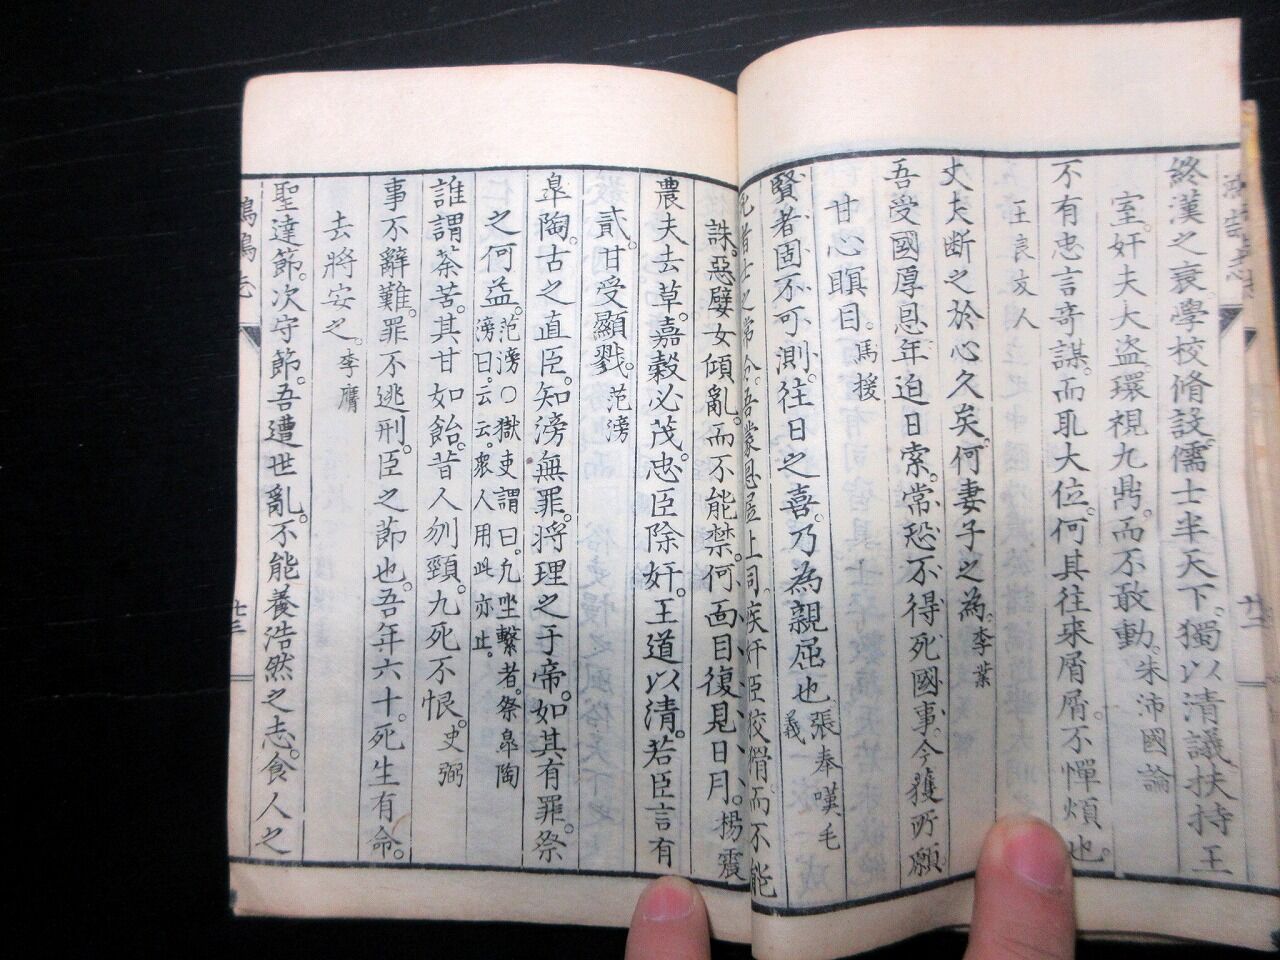 終漢之衰。學校脩設。儒士半天下。獨以清議扶持王
室。奸夫大盗。環視九鼎。而不敢動。朱沛國論
不有忠言奇謀。而取大位。何其往來屑屑。不憚煩也。
王良友人
丈夫断之於心久矣。何妻子之為。李業
吾受國厚恩。年迫日索。常恐不得死國事。今獲所願。
甘心瞑目。馬援
賢者固不可測。往日之喜。乃為親屈也。張奉嘆毛義
死者士之常分。吾蒙恩居上司。疾奸臣狡猾。而不能
誅。惡嬖女傾亂。而不能禁。何面目復見日月。楊震
農夫去草。嘉穀必茂。忠臣除奸。王道以清。若臣言有
貳。甘受顯戮。范滂
皐陶。古之直臣。知滂無罪。將理之于帝。如其有罪。祭
之何益。范滂○獄吏謂曰。凡坐繫者。祭皐陶
滂曰。云云。衆人用此亦止。
誰謂荼苦。其甘如飴。昔人刎頸。九死不恨。史弼
事不辭難。罪不逃刑。臣之節也。吾年六十。死生有命。
去將安之。李膺
聖達節。次守節。吾遭世亂。不能養浩然之志。食人之